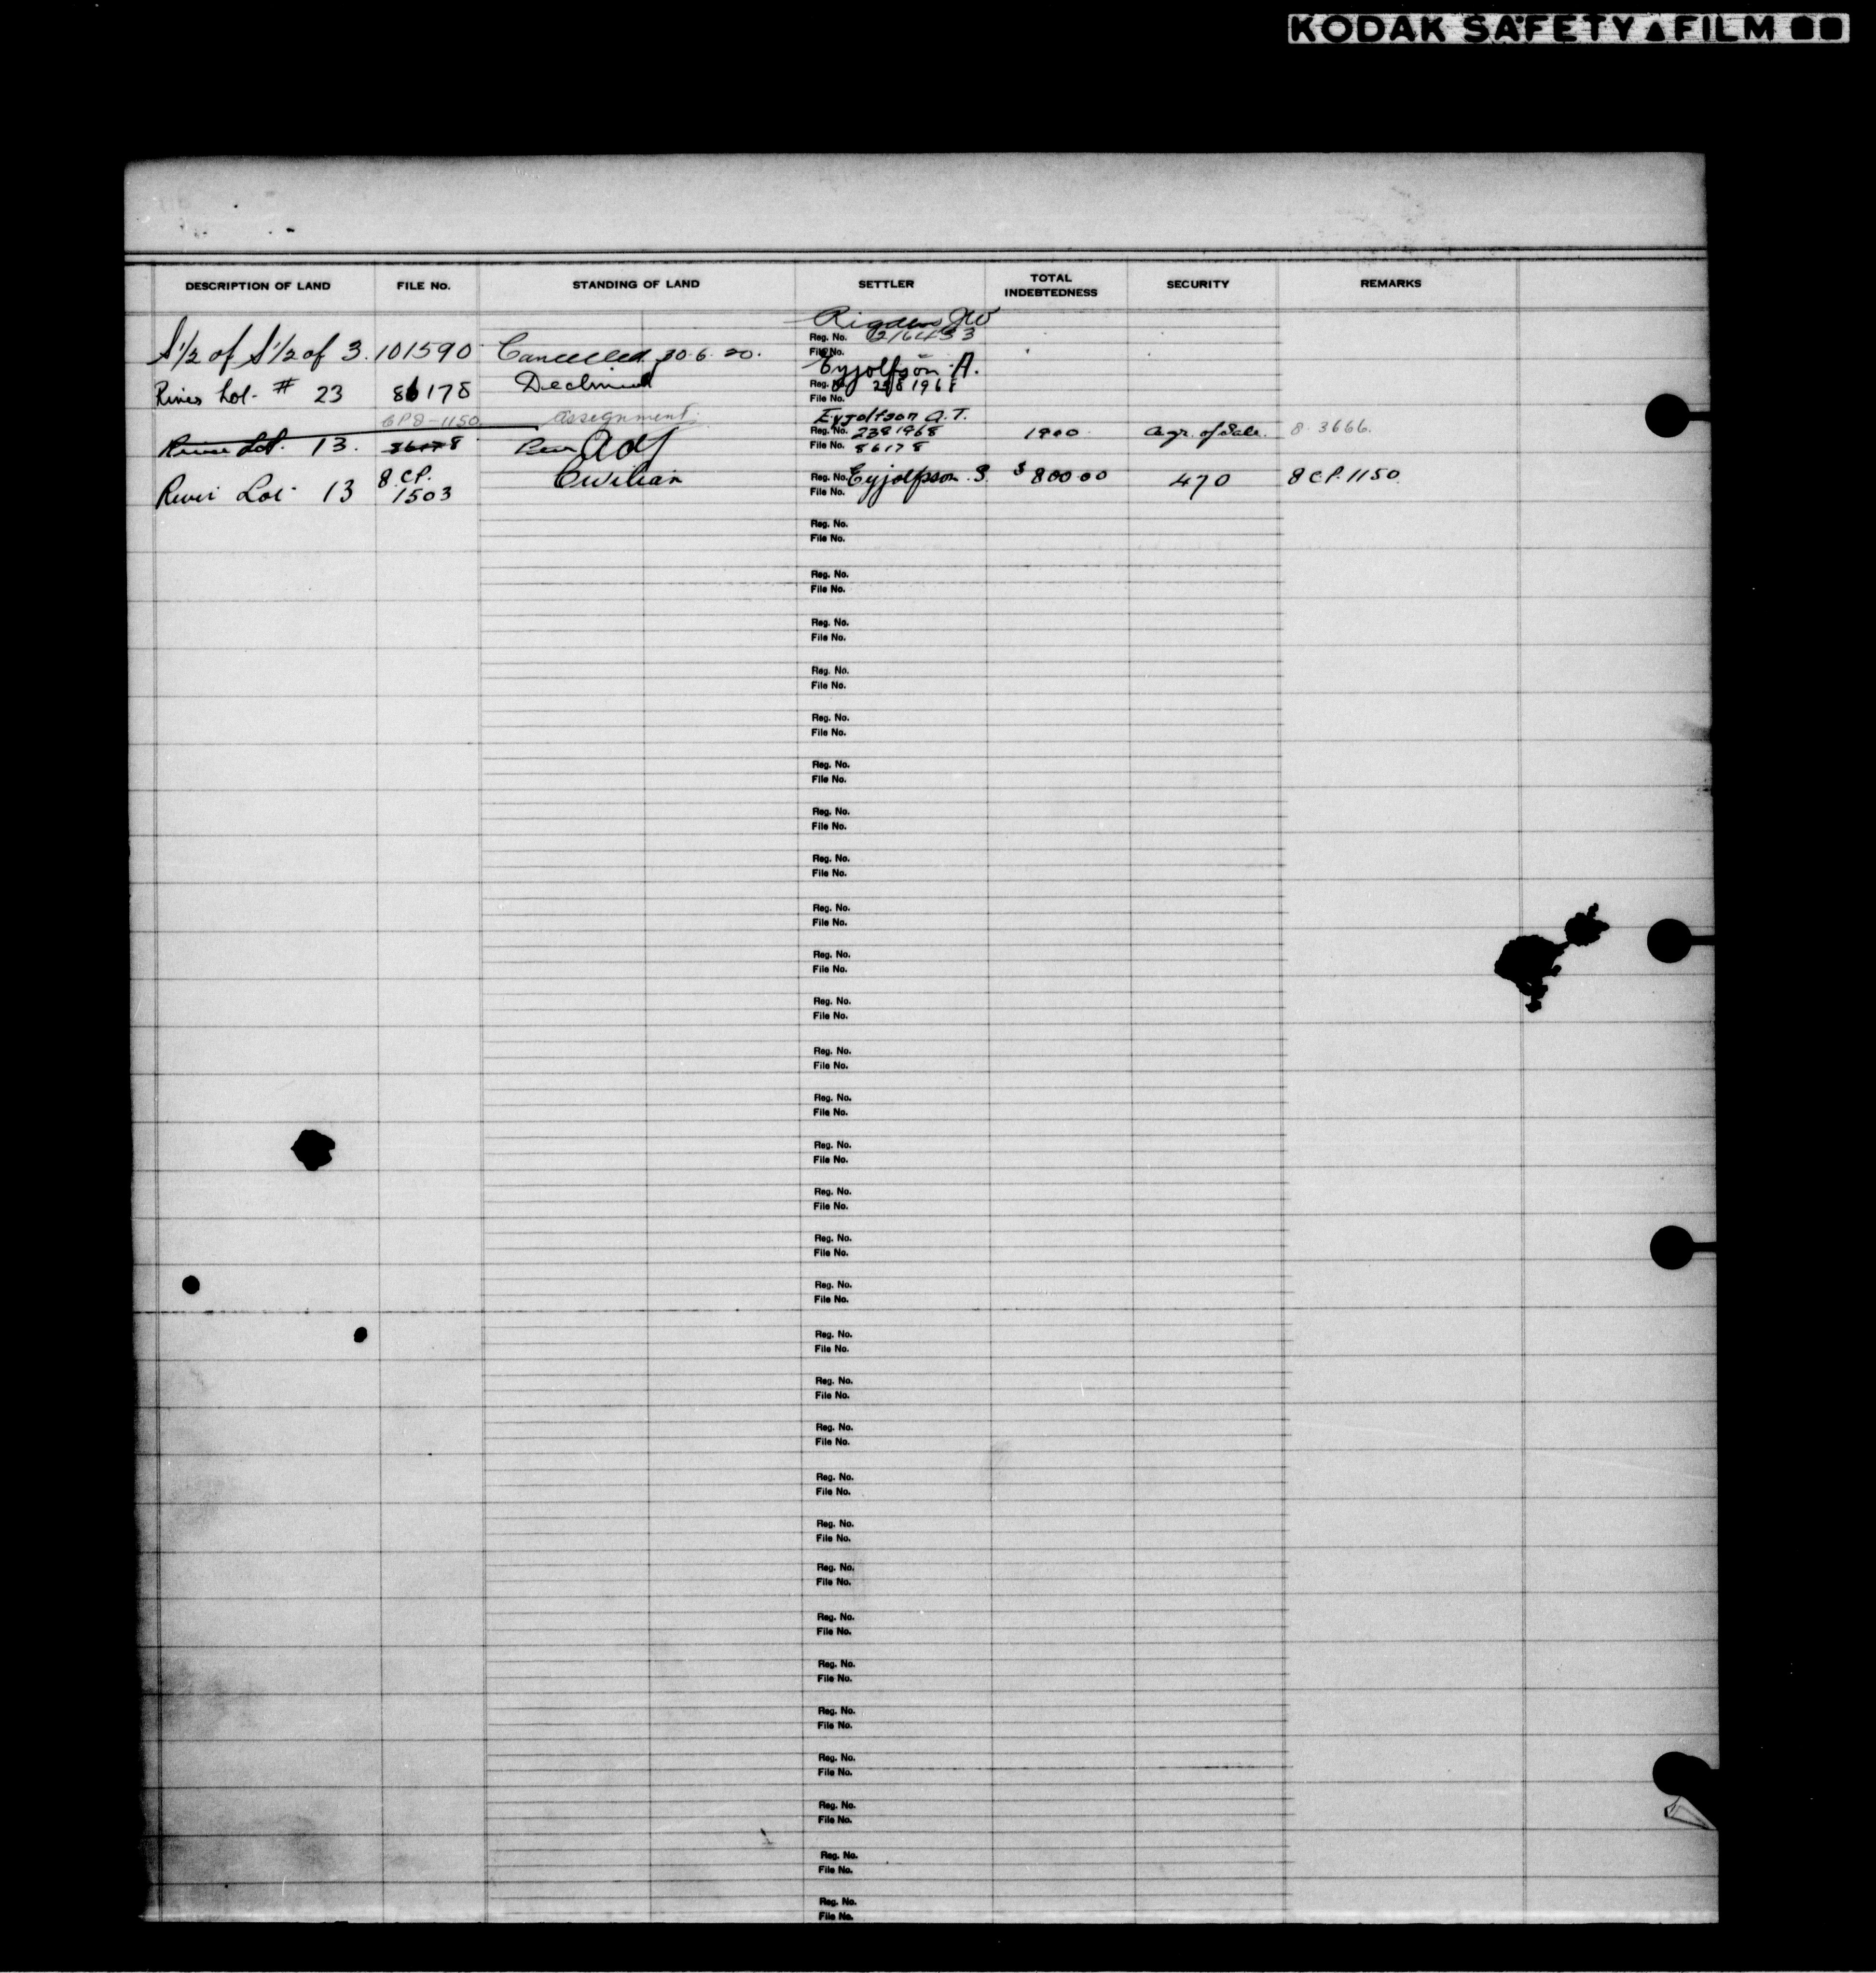 KODAK SAFETY FILM
DESCRIPTION OF LAND FILE No. STANDING OF LAND SETTLER TOTAL INDEBTEDNESS SECURITY REMARKS
S½ of S½ of 3. 101590 Cancelled 30.6.20. Rigden JW
Reg. No. 2164133
File No.
River Lot # 23 86178 Declined Eyjolfson A.
Reg. No. 2381968
File No.
CP8-1150 Assignment Eyjolfson A.T.
River Lot 13. 86178 Adj Reg. No. 2381968 1900 Agr. of Sale. 8 3666.
File No. 86178
River Lot 13 8 CP. 1503 Civilian Reg. No. Eyjolfsson S. $800.00 470 8 CP. 1150
File No.
Reg. No.
File No.
Reg. No.
File No.
Reg. No.
File No.
Reg. No.
File No.
Reg. No.
File No.
Reg. No.
File No.
Reg. No.
File No.
Reg. No.
File No.
Reg. No.
File No.
Reg. No.
File No.
Reg. No.
File No.
Reg. No.
File No.
Reg. No.
File No.
Reg. No.
File No.
Reg. No.
File No.
Reg. No.
File No.
Reg. No.
File No.
Reg. No.
File No.
Reg. No.
File No.
Reg. No.
File No.
Reg. No.
File No.
Reg. No.
File No.
Reg. No.
File No.
Reg. No.
File No.
Reg. No.
File No.
Reg. No.
File No.
Reg. No.
File No.
Reg. No.
File No.
Reg. No.
File No.
Reg. No.
File No.